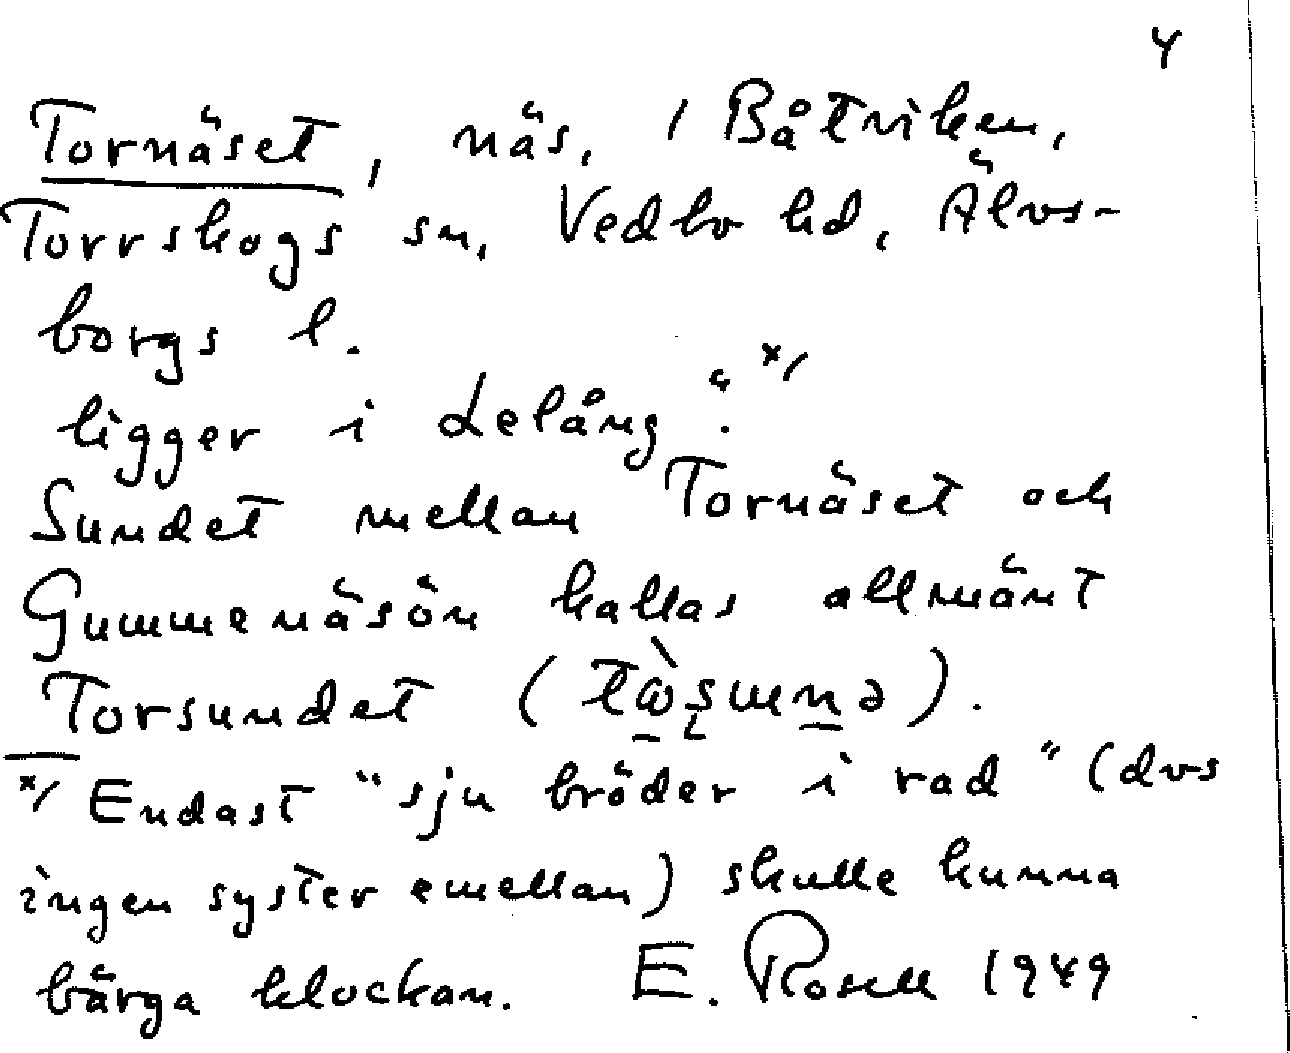 4
Tornäset, näs, i Båtviken,
Torrskogs sn, Vedbo hd, Älvs-
borgs l.
ligger i Lelång". x/
Sundet mellan Tornäset och
Gummenäsön kallas allmänt
Torsundet (
x/ Endast "sju bröder i rad" (dvs
ingen syster emellan) skulle kunna
bärga klockan. E. Rosell 1949